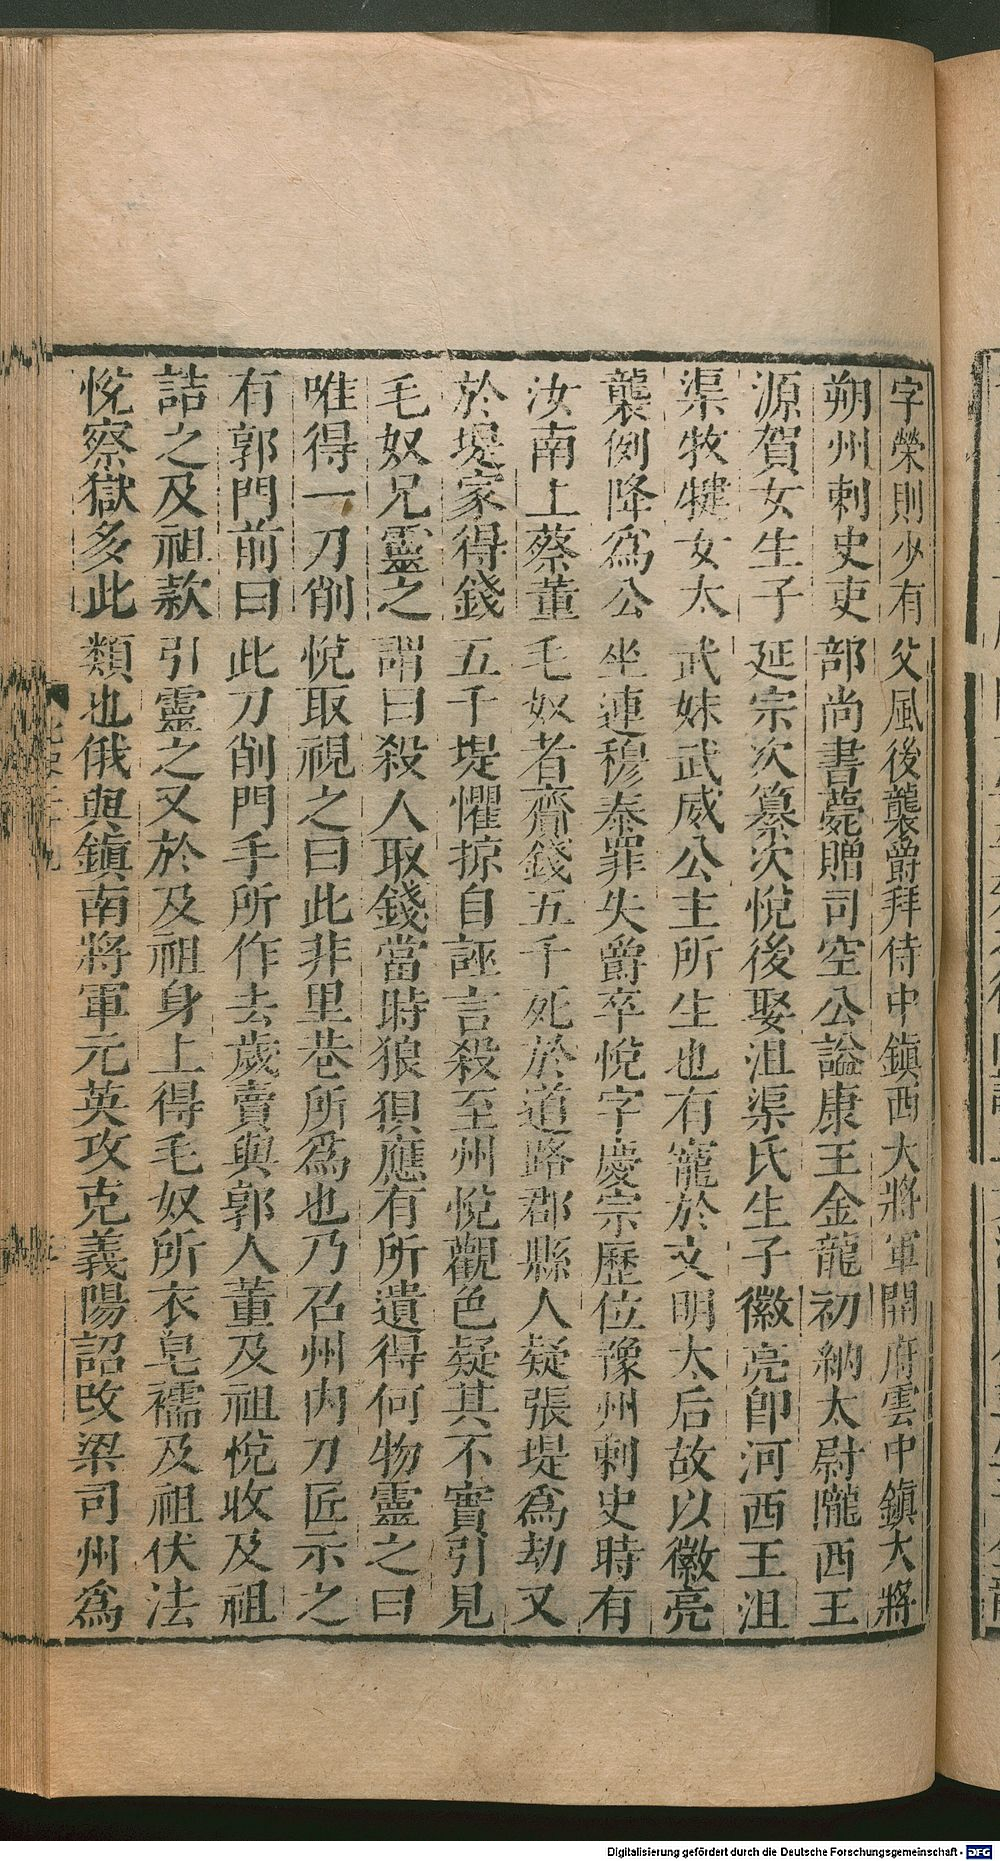 字榮則少有父風後襲爵拜侍中鎮西大將軍開府雲中鎮大將
朔州刺史吏部尚書薨贈司空公謚康王金龍初納太尉隴西王
源賀女生子延宗次纂次悅後娶沮渠氏生子徽亮卽河西王沮
渠牧犍女太武妹武威公主所生也有寵於文明太后故以徽亮
襲例降爲公坐連穆泰罪失爵卒悅字慶宗歷位豫州刺史時有
汝南上蔡董毛奴者齎錢五千死於道路郡縣人疑張堤爲劫又
於堤家得錢五千堤懼掠自誣言殺至州悅觀色疑其不實引見
毛奴兄靈之謂曰殺人取錢當時狼狽應有所遺得何物靈之曰
唯得一刀削悅取視之曰此非里巷所爲也乃召州内刀匠示之
有郭門前曰此刀削門手所作去歲賣與郭人董及祖悅收及祖
詰之及祖款引靈之又於及祖身上得毛奴所衣皂襦及祖伏法
悅察獄多此類也俄與鎮南將軍元英攻克義陽詔改梁司州爲
Digitalisierung gefördert durch die Deutsche Forschungsgemeinschaft - DFG